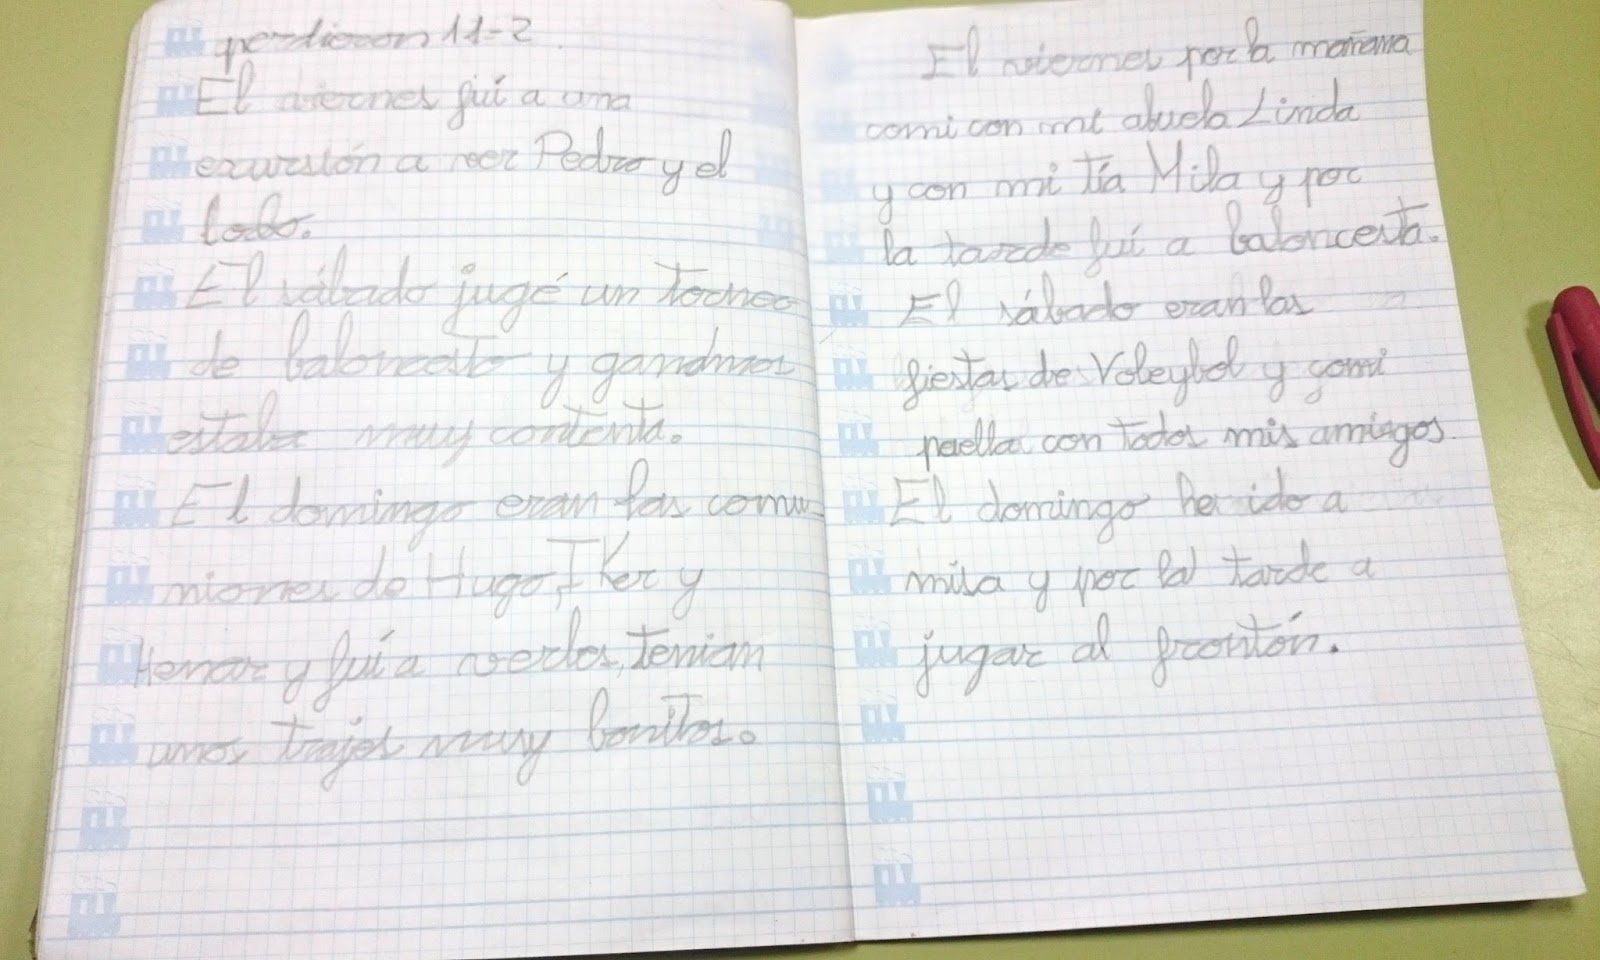 perdicon 11-2
El viernes fuí a una
excursión a veer Pedro y el
lobo.
El sábado jugé un torneo
de baloncesto y ganamos
estaba muy contenta.
El domingo eran las comu-
niones de Hugo, IKer y
Henar y fuí a verlos, tenian
unos trajes muy bonitos.
El viernes por la mañana
comi con mi abuela Linda
y con mi tía Mila y por
la tarde fuí a baloncesta.
El sábado eran las
fiestas de Voleybol y comi
paella con todos mis amigos
El domingo he ido a
misa y por la tarde a
jugar al frontón.